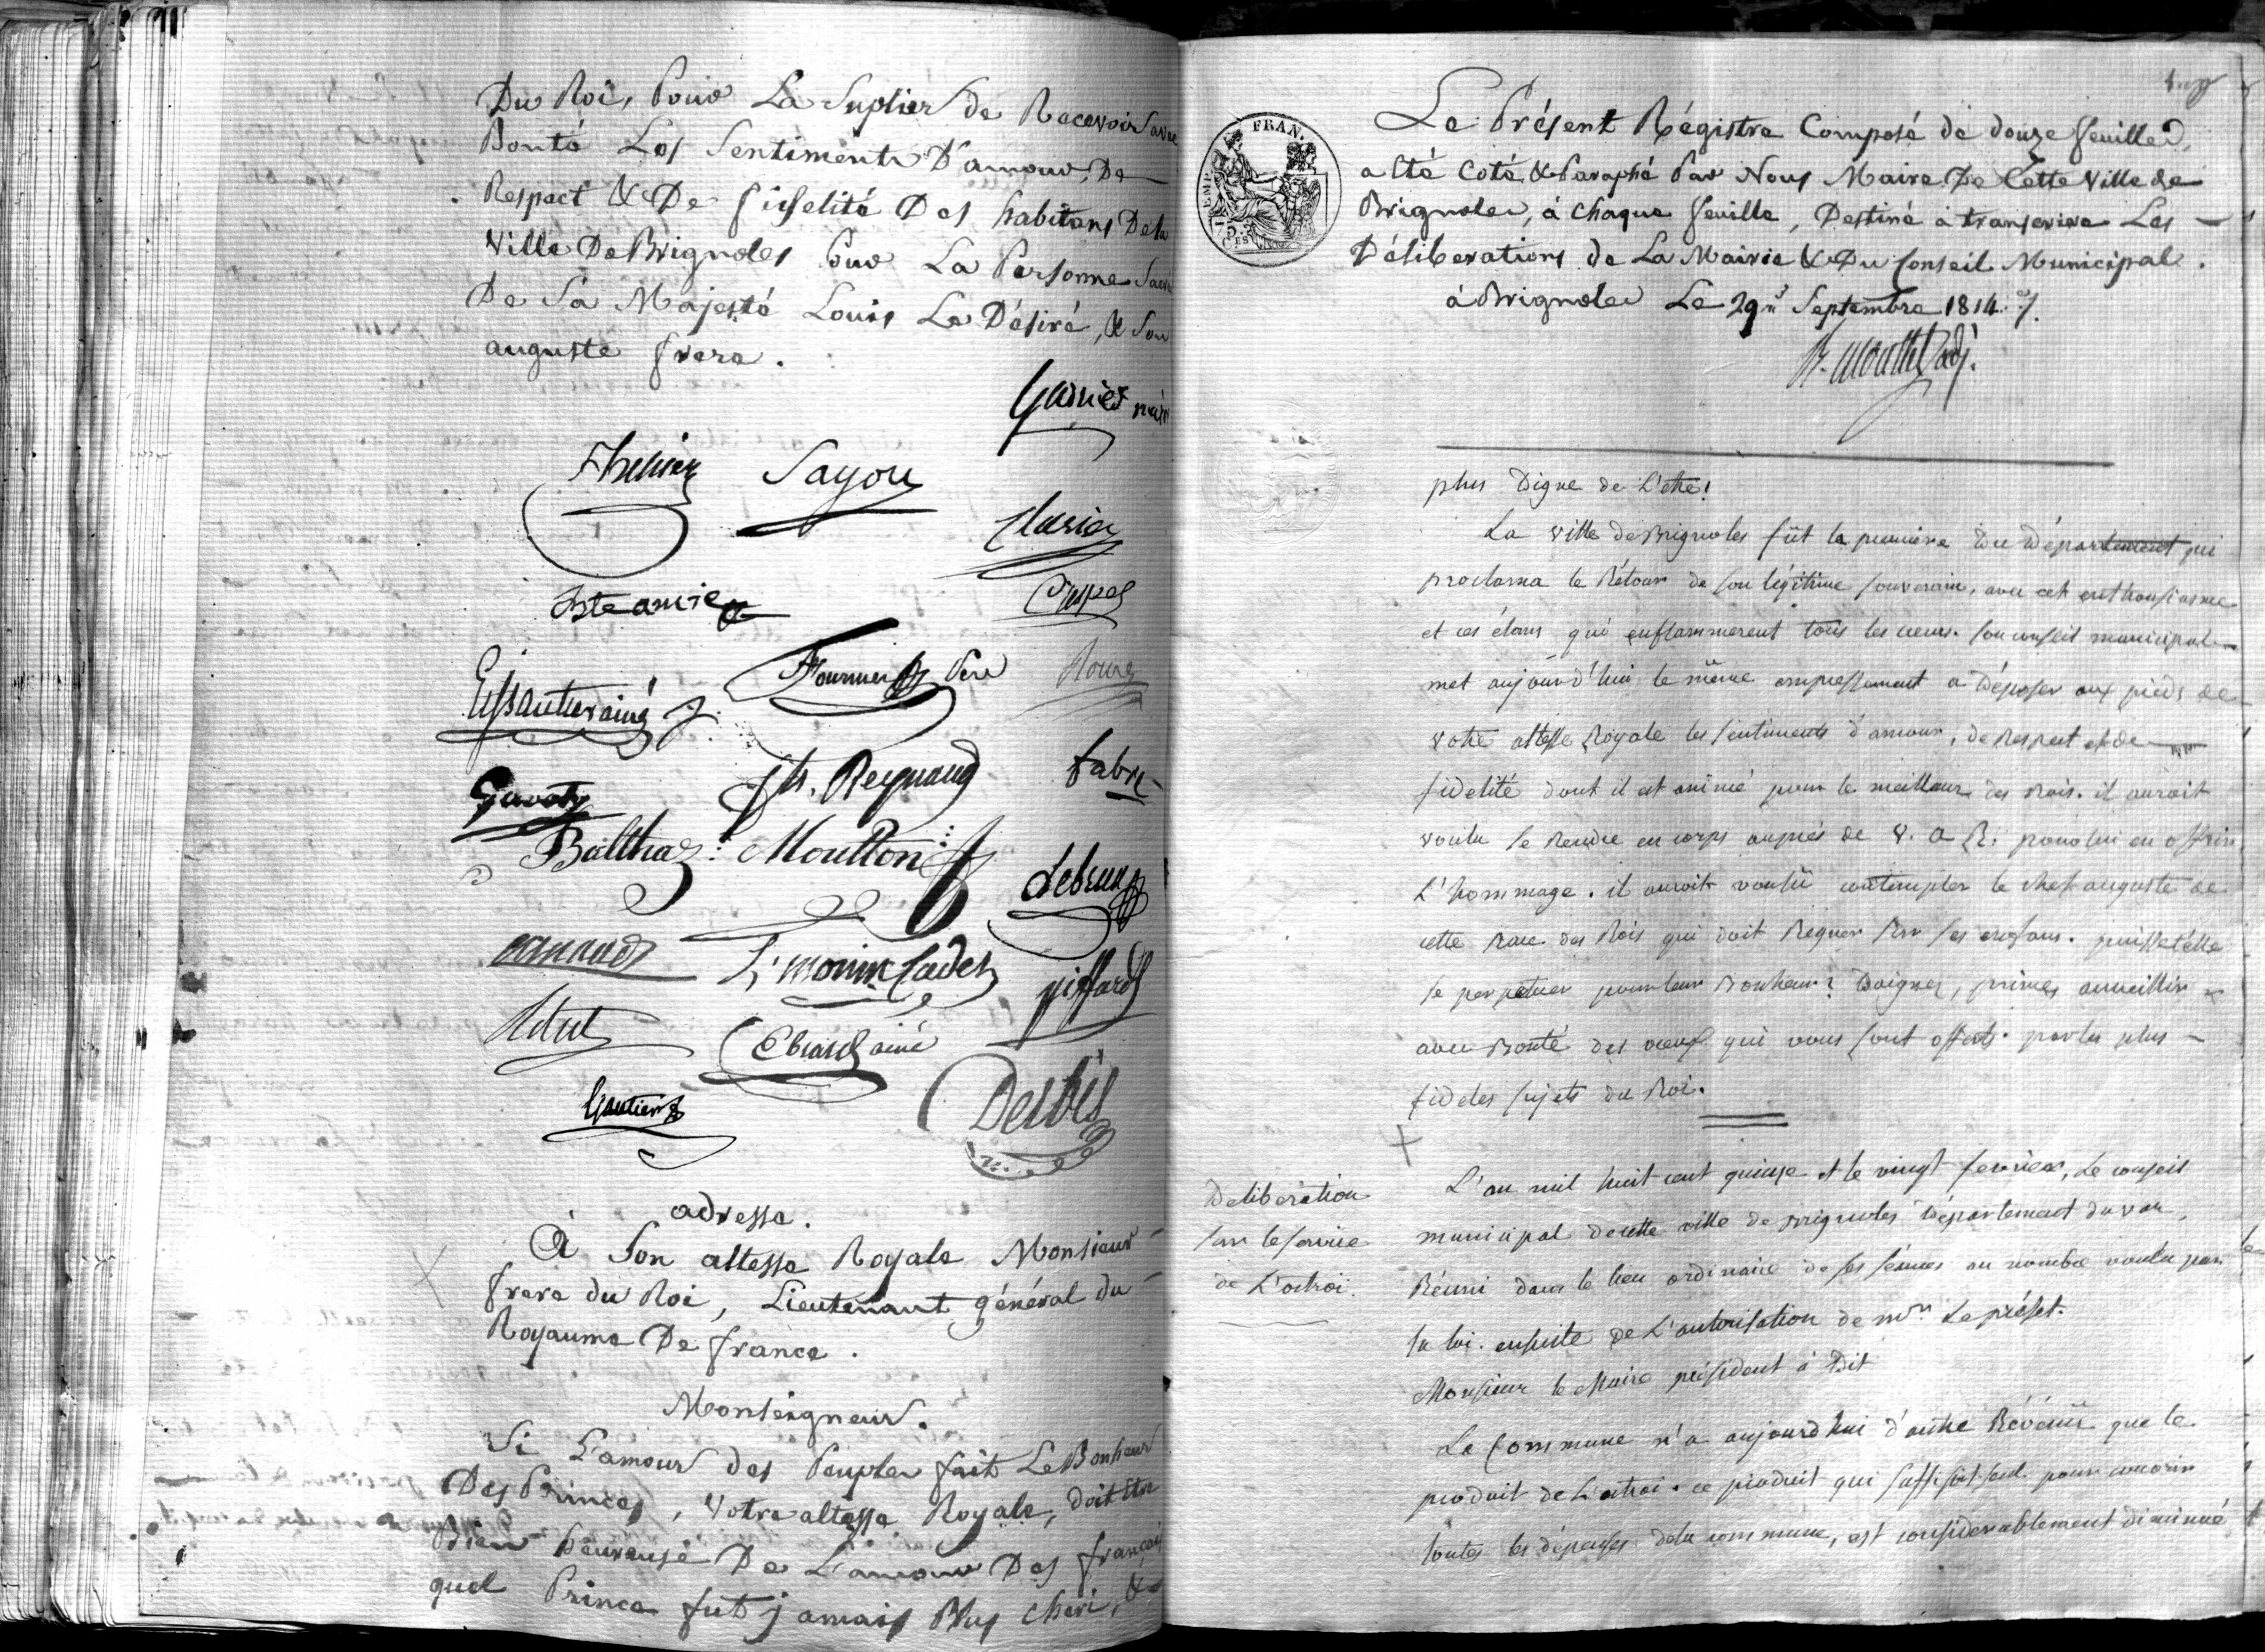 Du Roi, Pour La Suplier de Recevoir avec
Bonté Les Sentiments D'amour, De
Respect & De fidelité Des habitans De la
Ville De Brignoles Pour La Personne Sacrée
De Sa Majesté Louis Le Désiré, & Son
auguste frere.
Garnier maire
Sayou
Clavier
Fournier Père
Roure
Essautier ainé
Jh. Reynaud
fabre
Gavoty
Balthaz: Moutton
Lebrun
arnaud
L. monin Cadet
piffard
Ebrard ainé
Gautier
adresse.
À Son altesse Royale Monsieur
frere du Roi, Lieutenant général du
Royaume De france.
Monseigneur.
Si L'amour des Peuples fait Le Bonheur
Des Princes, Votre altesse Royale, doit Etre
Bien heureuse De L'amour Des français
quel Prince fut jamais Plus cheri, &
Le Présent Régistre Composé de douze feuilles,
a Eté Coté & Paraphé Par Nous Maire De Cette Ville de
Brignoles, à Chaque feuille, Destiné à transcrire Les
Déliberations de La Mairie & Du Conseil Municipal.
à Brignoles Le 29 Septembre 1814.
FRAN.
75
C.ES
plus Digne de L'etre!
La ville de Brignoles fût la premiere Du Département qui
proclama le Rétour de son légitime souverain, avec cet enthousiasme
et ces élans qui enflammerent tous les cœurs. son conseil municipal
met aujourd'hui le même empressement a Déposer aux pieds de
votre altesse Royale les sentiments d'amour, de Respect et de
fidelité dont il est animé pour le meilleur des Rois. il auroit
voulu se Rendre en corps auprès de V. A. R. pour lui en offrir
L'hommage. il auroit voulû contempler le chef auguste de
cette Race des Rois qui doit Regner sur ses enfans. puisse t'elle
se perpetuer pour leur Bonheur! Daignez, prince, accueillir
avec Bonté des vœux qui vous sont offerts par les plus
fideles sujets du Roi.
Deliberation
sur le service
de L'octroi.
L'an mil huit cent quinze et le vingt fevrier, Le conseil
municipal de cette ville de Brignoles Département du var,
Réuni dans le lieu ordinaire de ses séances au nombre voulu par
la loi. ensuite de L'autorisation de mr. Le préfet.
Monsieur le Maire président à Dit
La Commune n'a aujourd'hui d'autre Révénû que le
produit de L'octroi. ce produit qui suffisoit seul pour couvrir
toutes les dépenses de la commune, est considerablement diminué